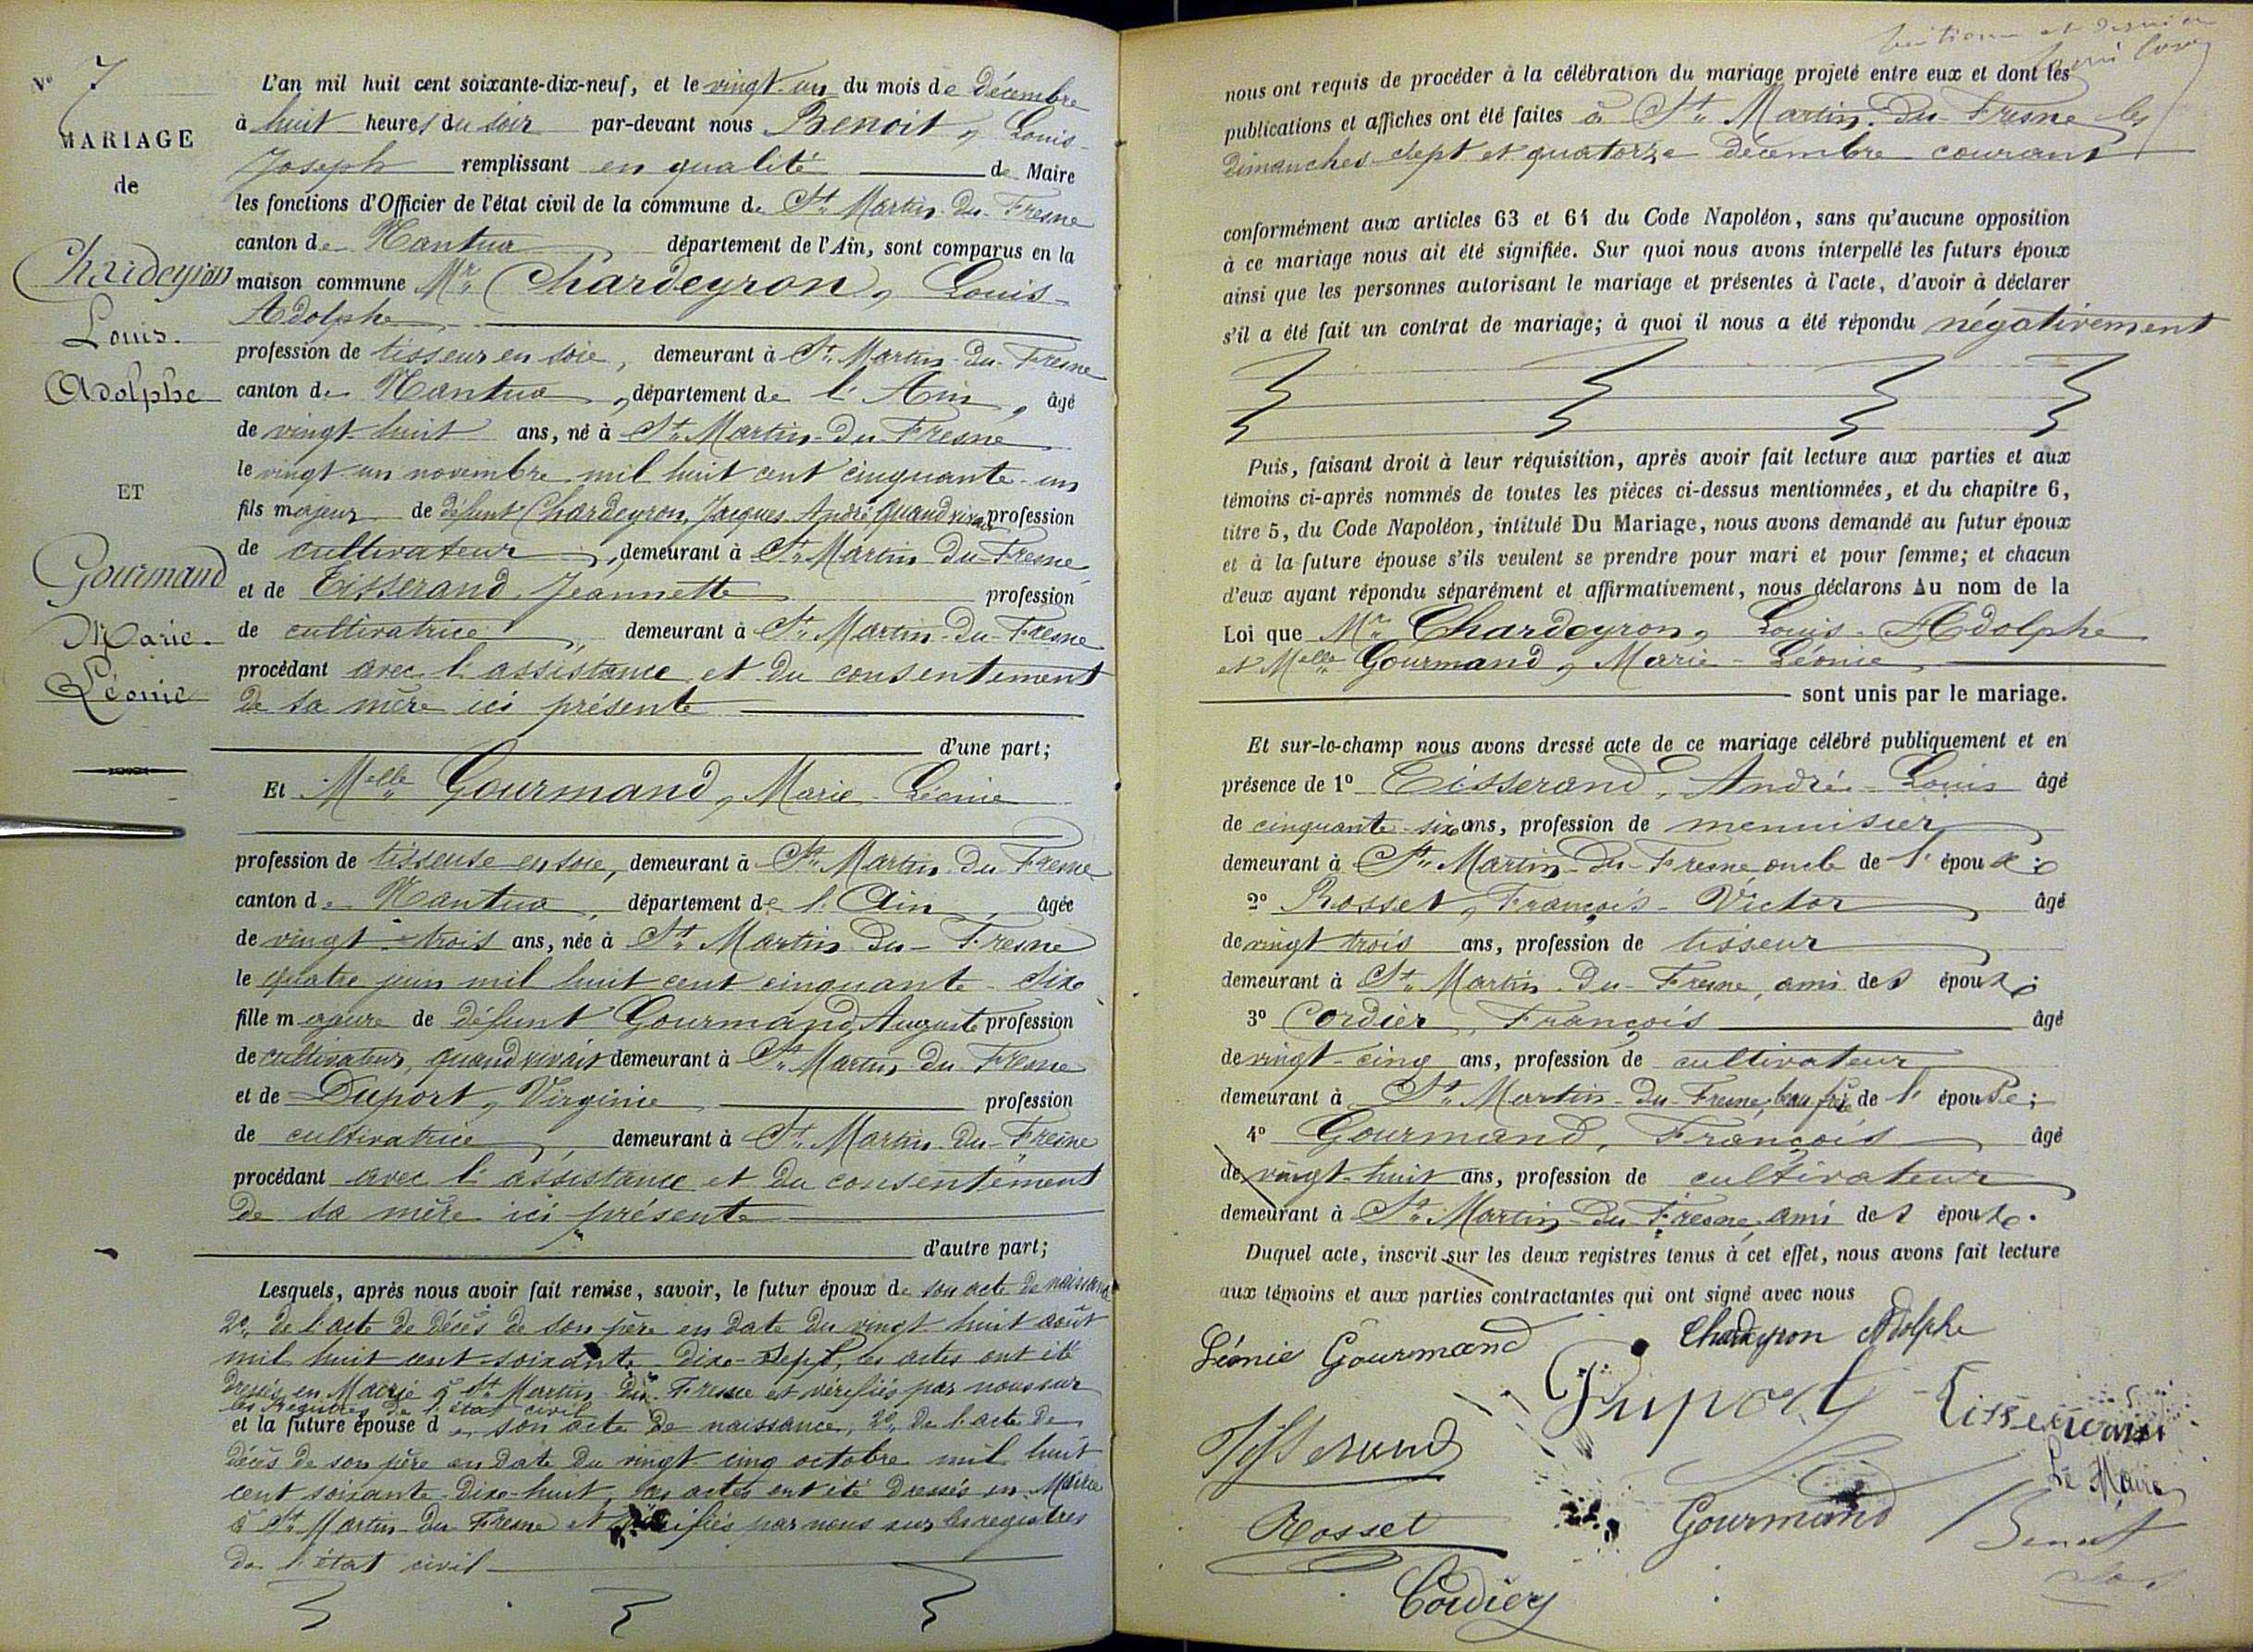 N° 7
MARIAGE
de
Chardeyron
Louis-
Adolphe
ET
Gourmand
Marie-
Léonie
L'an mil huit cent soixante-dix-neuf, et le vingt-un du mois de Décembre
à huit heures du soir par-devant nous Benoit, Louis-
Joseph remplissant en qualité de Maire
les fonctions d'Officier de l'état civil de la commune de St. Martin-Du-Fresne
canton de Nantua département de l'Ain, sont comparus en la
maison commune Mr. Chardeyron, Louis-
Adolphe
profession de tisseur en soie, demeurant à St. Martin-Du-Fresne
canton de Nantua, département de l'Ain, âgé
de vingt-huit ans, né à St. Martin-Du-Fresne
le vingt-un novembre mil huit cent cinquante-un
fils majeur de défunt Chardeyron, Jacques André quand vivait profession
de cultivateur, demeurant à St. Martin-Du-Fresne
et de Tisserand, Jeannette profession
de cultivatrice, demeurant à St. Martin-Du-Fresne
procédant avec l'assistance et du consentement
de sa mère ici présente
d'une part;
Et Melle Gourmand, Marie-Léonie
profession de tisseuse en soie, demeurant à St. Martin-Du-Fresne
canton de Nantua, département de l'Ain, âgée
de vingt-trois ans, née à St. Martin-Du-Fresne
le quatre juin mil huit cent cinquante-six
fille majeure de défunt Gourmand, Auguste profession
de cultivateur, quand vivait demeurant à St. Martin-Du-Fresne
et de Duport, Virginie profession
de cultivatrice, demeurant à St. Martin-Du-Fresne
procédant avec l'assistance et du consentement
de sa mère ici présente
d'autre part;
Lesquels, après nous avoir fait remise, savoir, le futur époux de son acte de naissance
2°. de l'acte de décès de son père en date du vingt-huit août
mil huit cent soixante-dix-sept, les actes ont été
dressés en Mairie à St. Martin-du-Fresne et vérifiés par nous sur
les registres de l'état civil
et la future épouse de son acte de naissance, 2°. de l'acte de
décès de son père en date du vingt-cinq octobre mil huit
cent soixante-dix-huit, les actes ont été dressés en Mairie
à St. Martin-du-Fresne et vérifiés par nous sur les registres
de l'état civil
nous ont requis de procéder à la célébration du mariage projeté entre eux et dont les
publications et affiches ont été faites à St. Martin-Du-Fresne les
Dimanches sept et quatorze décembre courant
conformément aux articles 63 et 64 du Code Napoléon, sans qu'aucune opposition
à ce mariage nous ait été signifiée. Sur quoi nous avons interpellé les futurs époux
ainsi que les personnes autorisant le mariage et présentes à l'acte, d'avoir à déclarer
s'il a été fait un contrat de mariage; à quoi il nous a été répondu négativement
Puis, faisant droit à leur réquisition, après avoir fait lecture aux parties et aux
témoins ci-après nommés de toutes les pièces ci-dessus mentionnées, et du chapitre 6,
titre 5, du Code Napoléon, intitulé Du Mariage, nous avons demandé au futur époux
et à la future épouse s'ils veulent se prendre pour mari et pour femme; et chacun
d'eux ayant répondu séparément et affirmativement, nous déclarons Au nom de la
Loi que Mr. Chardeyron, Louis-Adolphe
et Melle Gourmand, Marie-Léonie,
sont unis par le mariage.
Et sur-le-champ nous avons dressé acte de ce mariage célébré publiquement et en
présence de 1° Tisserand, André-Louis âgé
de cinquante-six ans, profession de menuisier
demeurant à St. Martin-Du-Fresne, oncle de l'époux;
2° Rosset, François-Victor âgé
de vingt trois ans, profession de tisseur
demeurant à St. Martin-Du-Fresne, ami des époux;
3° Cordier, François âgé
de vingt-cinq ans, profession de cultivateur
demeurant à St. Martin-du-Fresne, beau frère de l'épouse;
4° Gourmand, François âgé
de vingt-huit ans, profession de cultivateur
demeurant à St. Martin-Du-Fresne, ami des époux.
Duquel acte, inscrit sur les deux registres tenus à cet effet, nous avons fait lecture
aux témoins et aux parties contractantes qui ont signé avec nous
Léonie Gourmand
Chardeyron Adolphe
Duport
Tisserand
Tisserand
Le Maire
Rosset
Gourmand
Benoit
Cordier